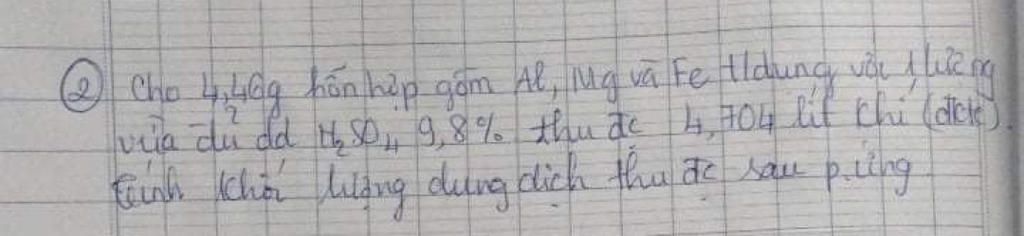 ② Cho 4,46g hỗn hợp gồm Al, Mg và Fe t/dung với 1 lường
vừa đủ dd H₂SO₄ 9,8% thu đc 4,704 lít khí (đktc).
tính khối lượng dung dịch thu đc sau p.ứng